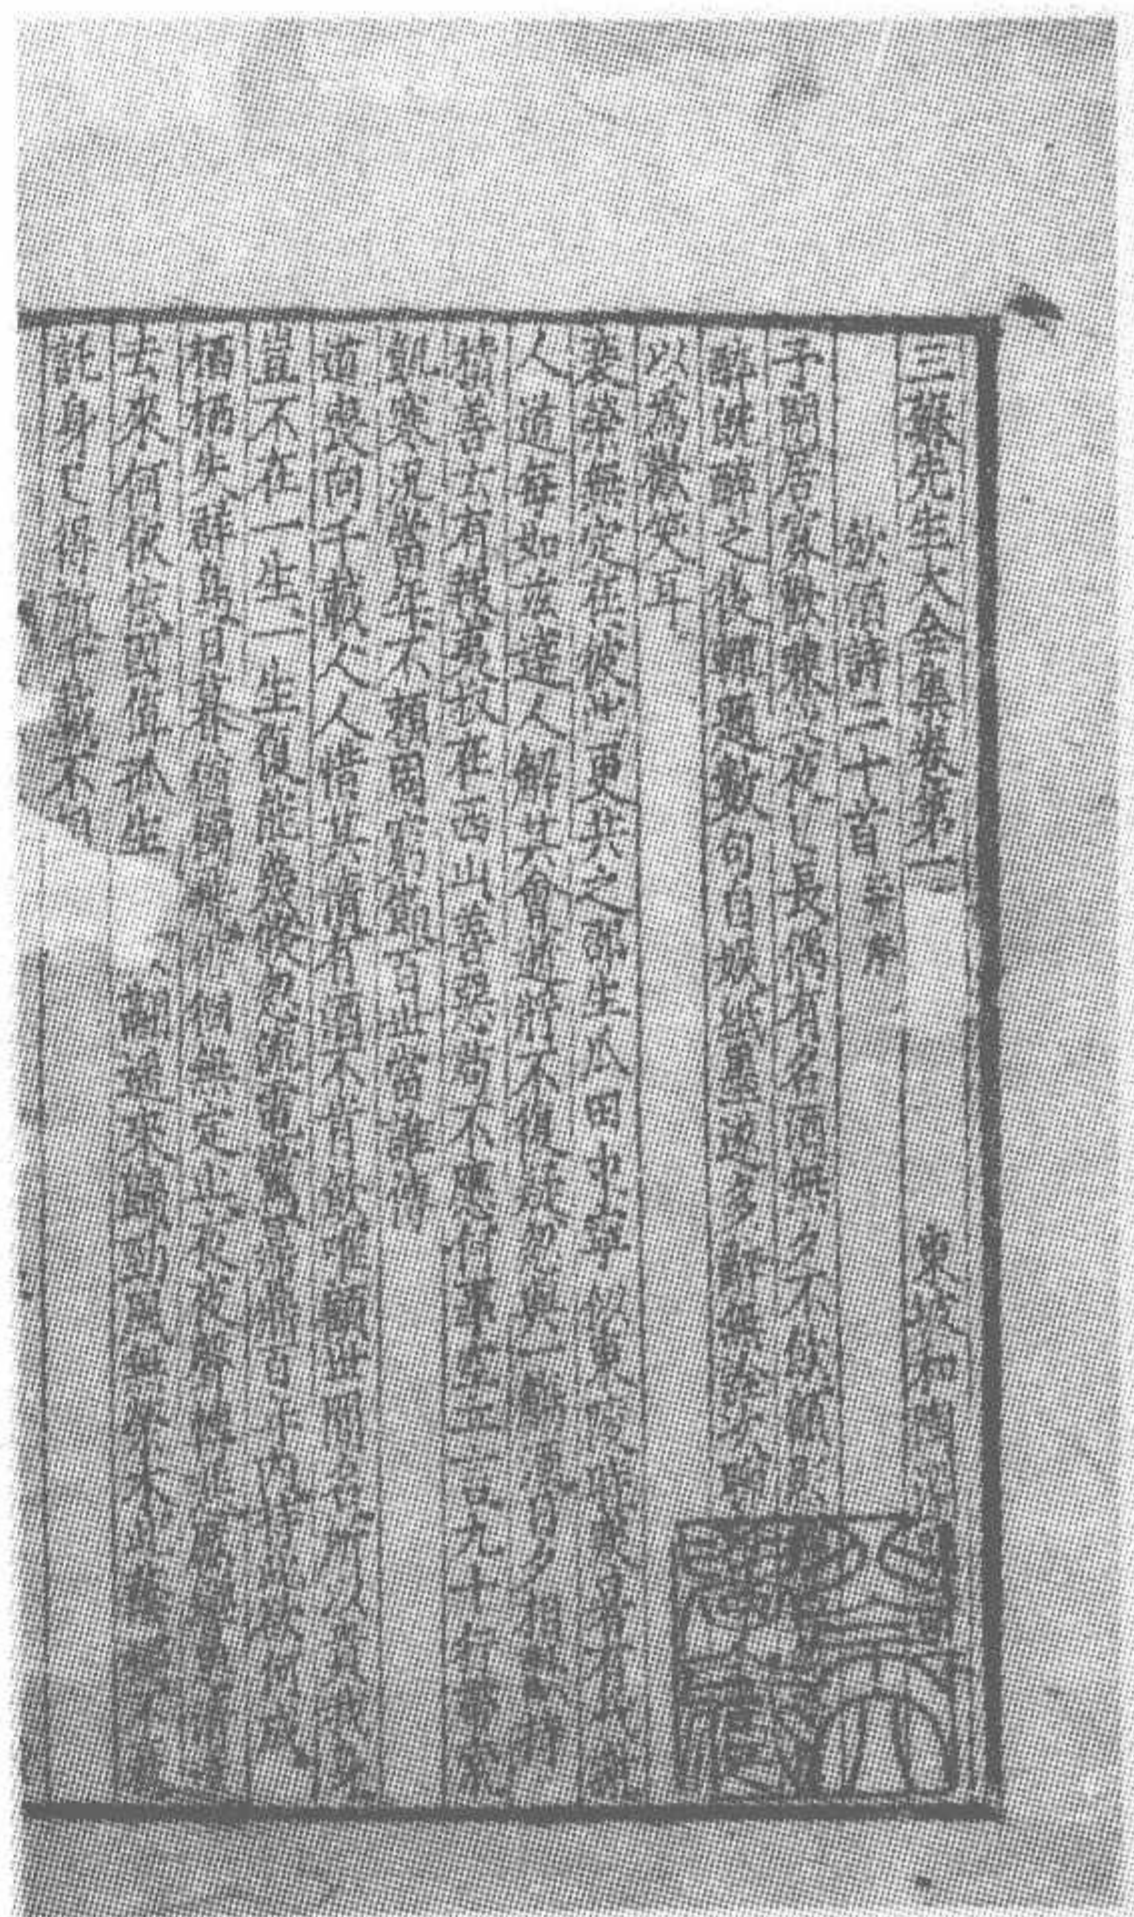 三蘇先生大全集卷第一 東坡和陶淵明詩
飲酒詩二十首并序
予閒居寡歡兼秋夜已長偶有名酒無夕不飲顧影
醉既醉之後輒題數句自娛紙墨遂多辭無詮次聊
以為歡笑耳
衰榮無定在彼此更共之邵生瓜田中寧似東陵時寒暑有代謝
人道每如茲達人解其會逝將不復疑忽與一觴酒日夕相歡持
積善云有報夷叔在西山善惡苟不應何事空立言九十行帶索
飢寒況當年不賴固窮節百世當誰傳
道喪向千載人人惜其情有酒不肯飲唯顧世間名所以貴我身
豈不在一生一生復能幾倏忽流電驚鼎鼎百年內持此欲何成
栖栖失群鳥日暮猶獨飛徘徊無定止夜夜聲轉悲厲響
去來何依依因值孤生 翮遙來歸勁風無榮木此蔭獨不衰
託身已得所千載不相